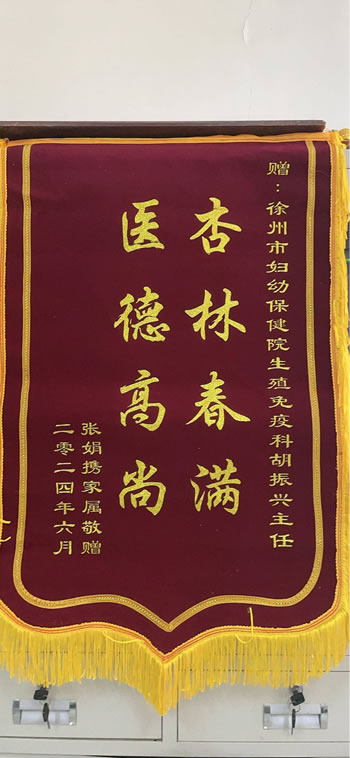 赠：徐州市妇幼保健院生殖免疫科胡振兴主任
杏林春满
医德高尚
张娟携家属敬赠
二零二四年六月